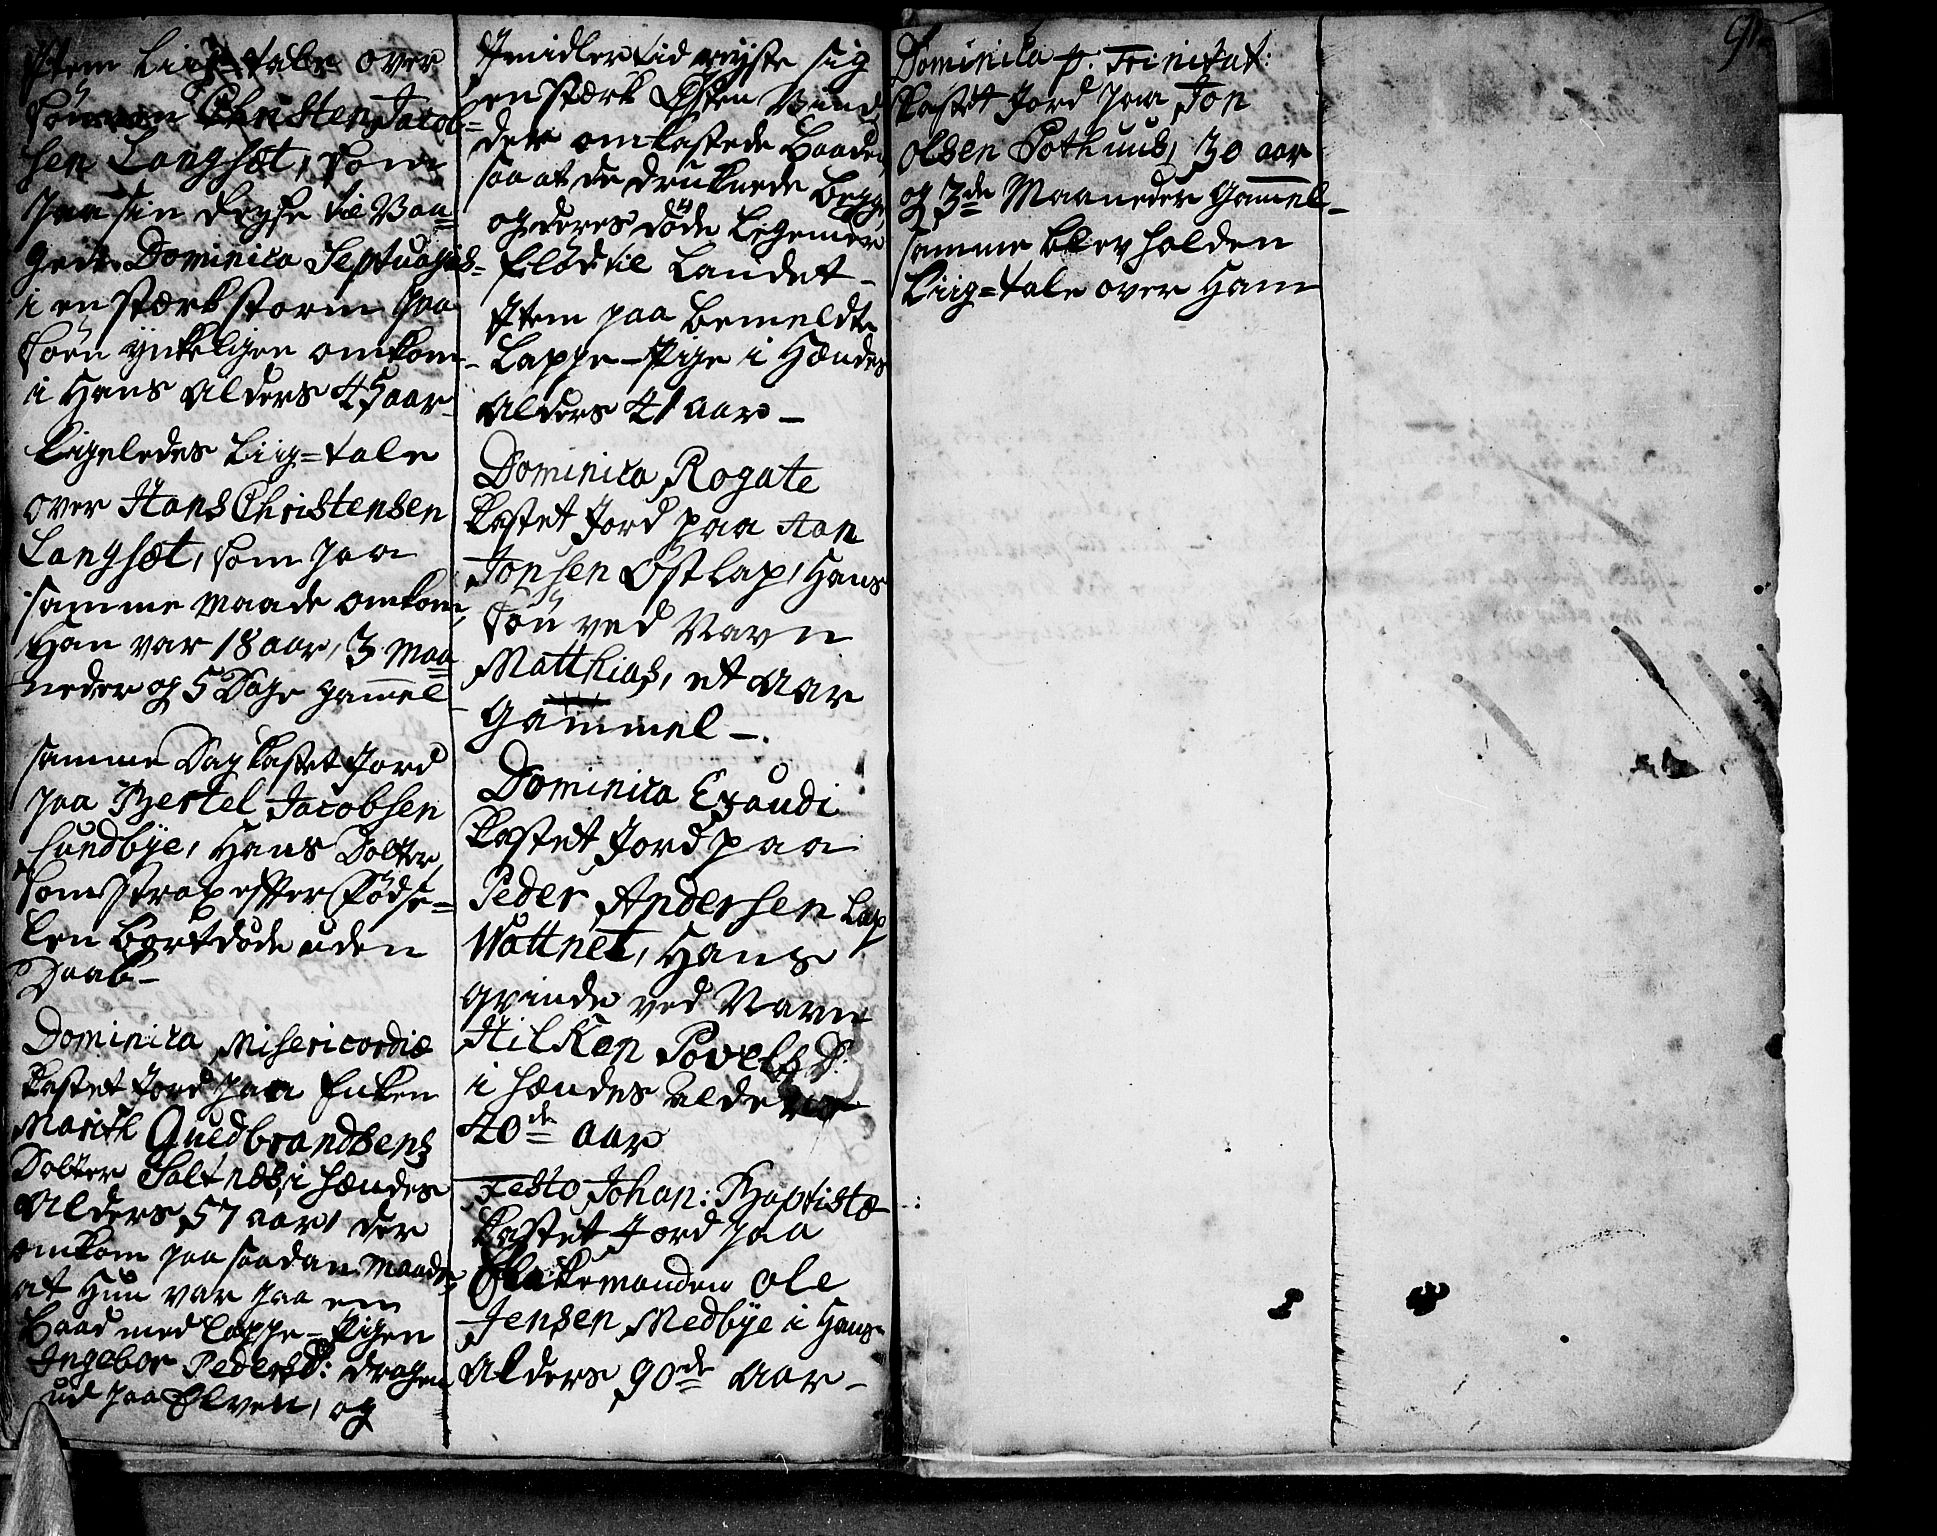 Item Liig-tale over
Christen Jacob=
sen Langsæt, som
paa sin Reyse til Van=
get Dominica Septuages=
i en stærk storm paa
Söen ynkeligen omkom-
i Hans Alders 45 aar-
Ligeledes Liig=tale
over Hans Christensen
Langsæt, som paa
samme maade omkom,
Han var 18 aar, 3 Maa=
neder og 5 Dage gam̄el
samme Dag kastet Jord
paa Bertel Jacobsen
Sundbÿe, Hans Dotter,
som strax efter Födse=
len bortdöde uden
Daab-
Dominica Misericordiæ
kastet Jord paa Enken
Marith Guldbrandsens
Dotter Saltnes, i Hændes
Alders 57 aar, der
omkom paa saadan Maade,
at Hun var paa en
Baad med Lappe-Pigen
Ingebor PedersD: dragen
ud paa Elven, og
Imidlertid reyste sig
en stærk Östen Vind,
der omkastede Baaden,
saa at de druknede begge
og deres döde Legemer
flöd til Landet-
Item paa bemeldte
Lappe-Pige i Hændes
Alders 41 aar-
Dominica Rogate
kastet Jord paa Aan
Jonsen Ostlap, Hans
Sön ved Navn
Matthias, et Aar
Gammel-.
Dominica Exaudi
kastet Jord paa
Peder Andersen Lap
Wattnet, Hans
qvinde ved Navn
Hilken Povels D.
i Hændes Alders
40de aar
Festo Johan: Baptistæ
kastet Jord paa
Ole
Jensen Medbÿe i Hans
Alders 90de Aar-
91.
Dominica p. Trinitat:
kastet Jord paa Jon
Olsen Pothuus, 30 aar
og 3de Maaneder Gam̄el-
samme blev holden
Liig=tale over Ham